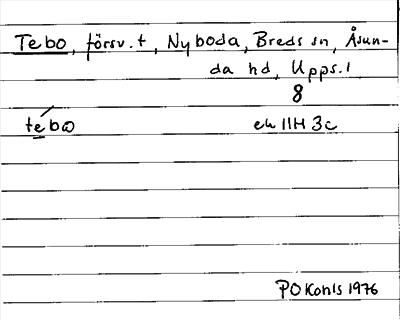 Tebo, försv. t, Nyboda, Breds sn, Åsun-
da hd, Upps. l
8
tébω ek 11H 3c
PO Konls 1976